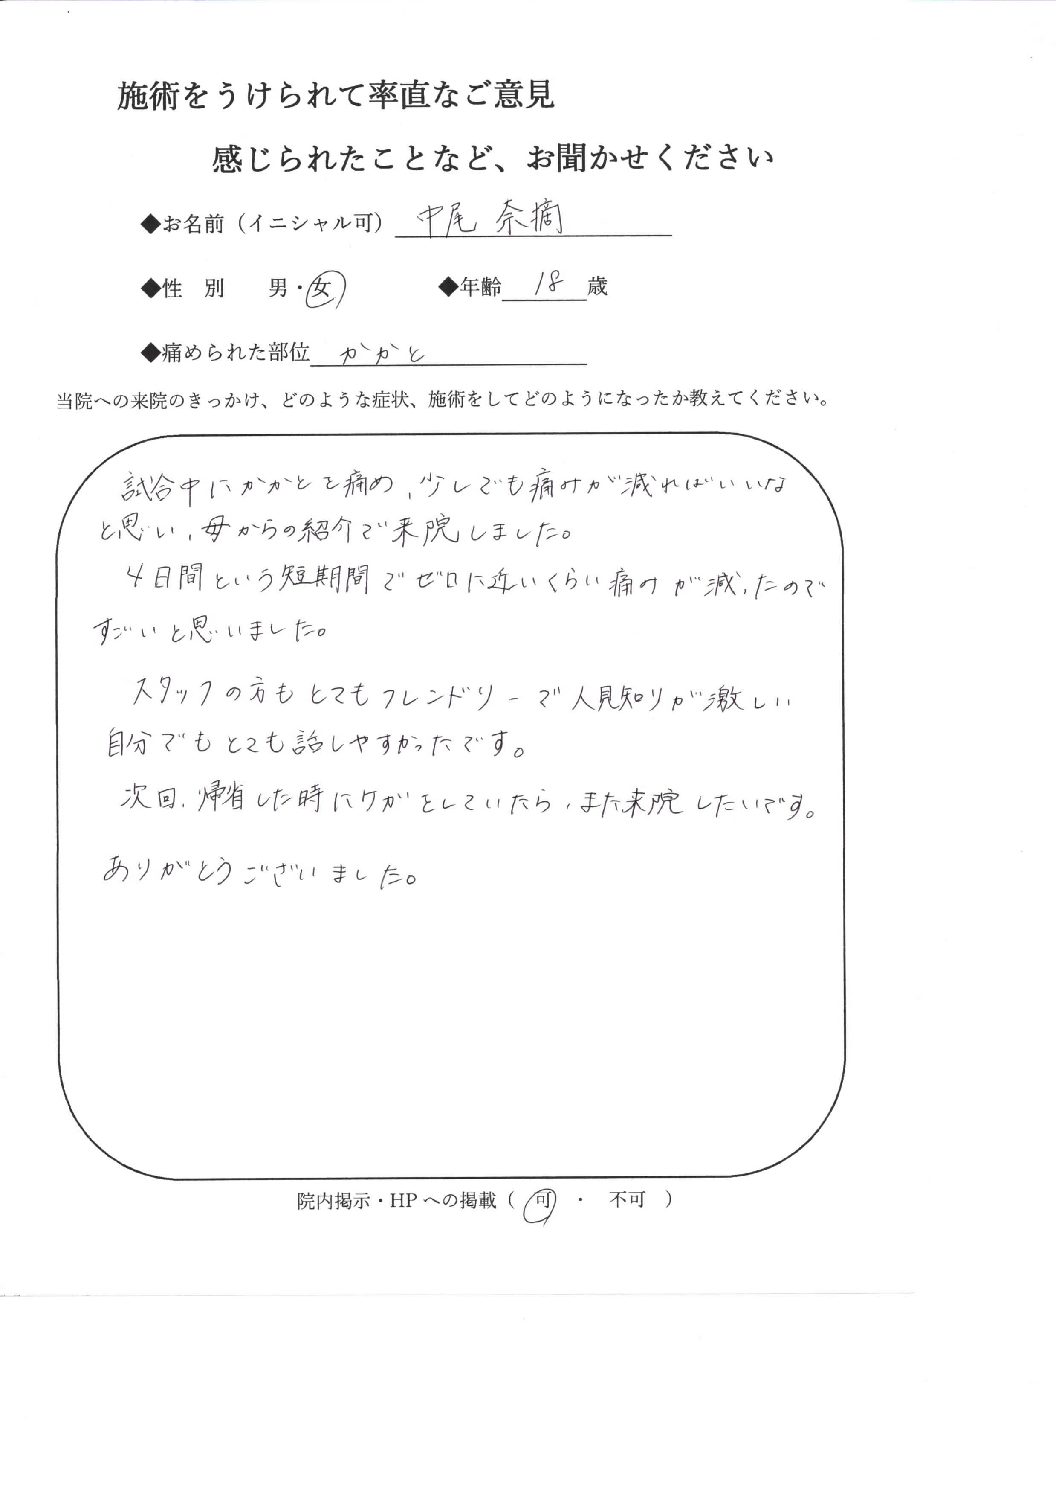 施術をうけられて率直なご意見
感じられたことなど、お聞かせください
◆お名前（イニシャル可） 中尾 奈摘
◆性 別 男・女 ◆年齢 18 歳
◆痛められた部位 かかと
当院への来院のきっかけ、どのような症状、施術をしてどのようになったか教えてください。
試合中にかかとを痛め、少しでも痛みが減ればいいな
と思い、母からの紹介で来院しました。
4日間という短期間でゼロに近いくらい痛みが減ったので
すごいと思いました。
スタッフの方もとてもフレンドリーで人見知りが激しい
自分でもとても話しやすかったです。
次回、帰省した時にケガをしていたら、また来院したいです。
ありがとうございました。
院内掲示・HPへの掲載（ 可 ・ 不可 ）